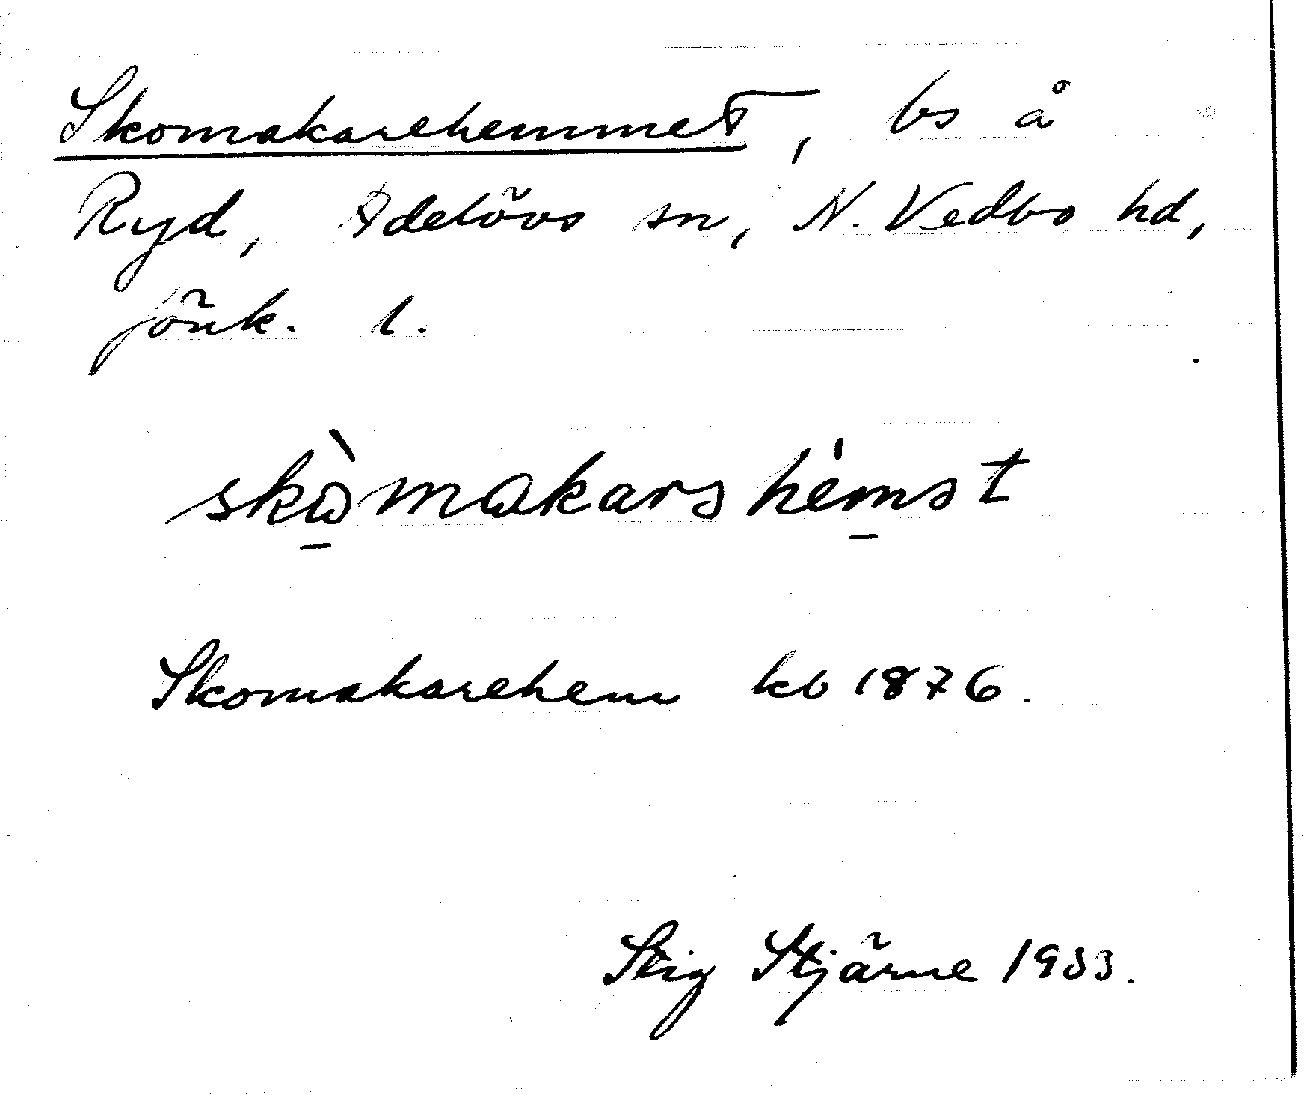 Skomakarehemmet, bs å
Ryd, Adelövs sn, N. Vedbo hd,
Jönk. l.
skòmakarshemət
Skomakarehem kb 1876.
Stig Stjärne 1933.